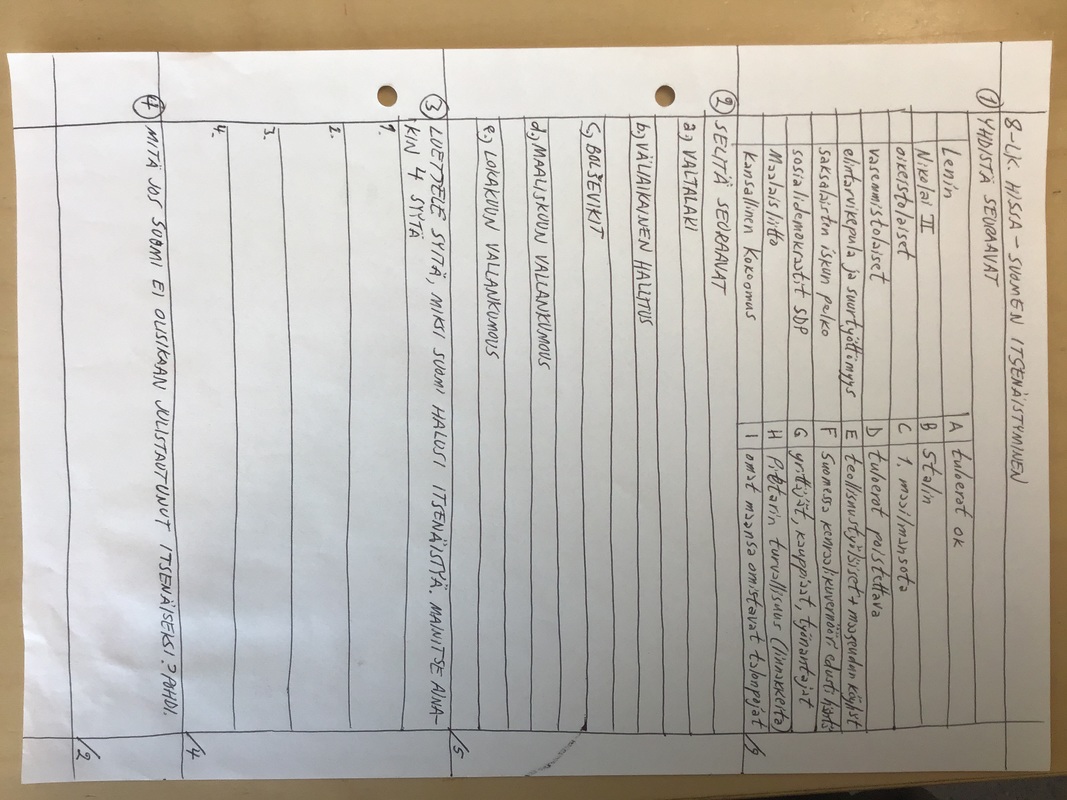 8-LK. HISSA - SUOMEN ITSENÄISTYMINEN
① YHDISTÄ SEURAAVAT
Lenin A tuloerot ok
Nikolai II B Stalin
oikeistolaiset C 1. maailmansota
vasemmistolaiset D tuloerot poistettava
elintarvikepula ja suurtyöttömyys E teollisuustyöläiset + maaseudun köyhät
saksalaisten iskun pelko F Suomessa kenraalikuvernööri edusti häntä
sosialidemokraatit SDP G yrittäjät, kauppiaat, työnantajat
Maalaisliitto H Pietarin turvallisuus (linnakkeita)
Kansallinen Kokoomus I omat maansa omistavat talonpojat
/9
② SELITÄ SEURAAVAT
a.) VALTALAKI
b.) VÄLIAIKAINEN HALLITUS
c.) BOLŠEVIKIT
d.) MAALISKUUN VALLANKUMOUS
e.) LOKAKUUN VALLANKUMOUS
/5
③ LUETTELE SYITÄ, MIKSI SUOMI HALUSI ITSENÄISTYÄ. MAINITSE AINA-
KIN 4 SYYTÄ
1.
2.
3.
4.
/4
④ MITÄ JOS SUOMI EI OLISIKAAN JULISTAUTUNUT ITSENÄISEKSI? POHDI.
/2